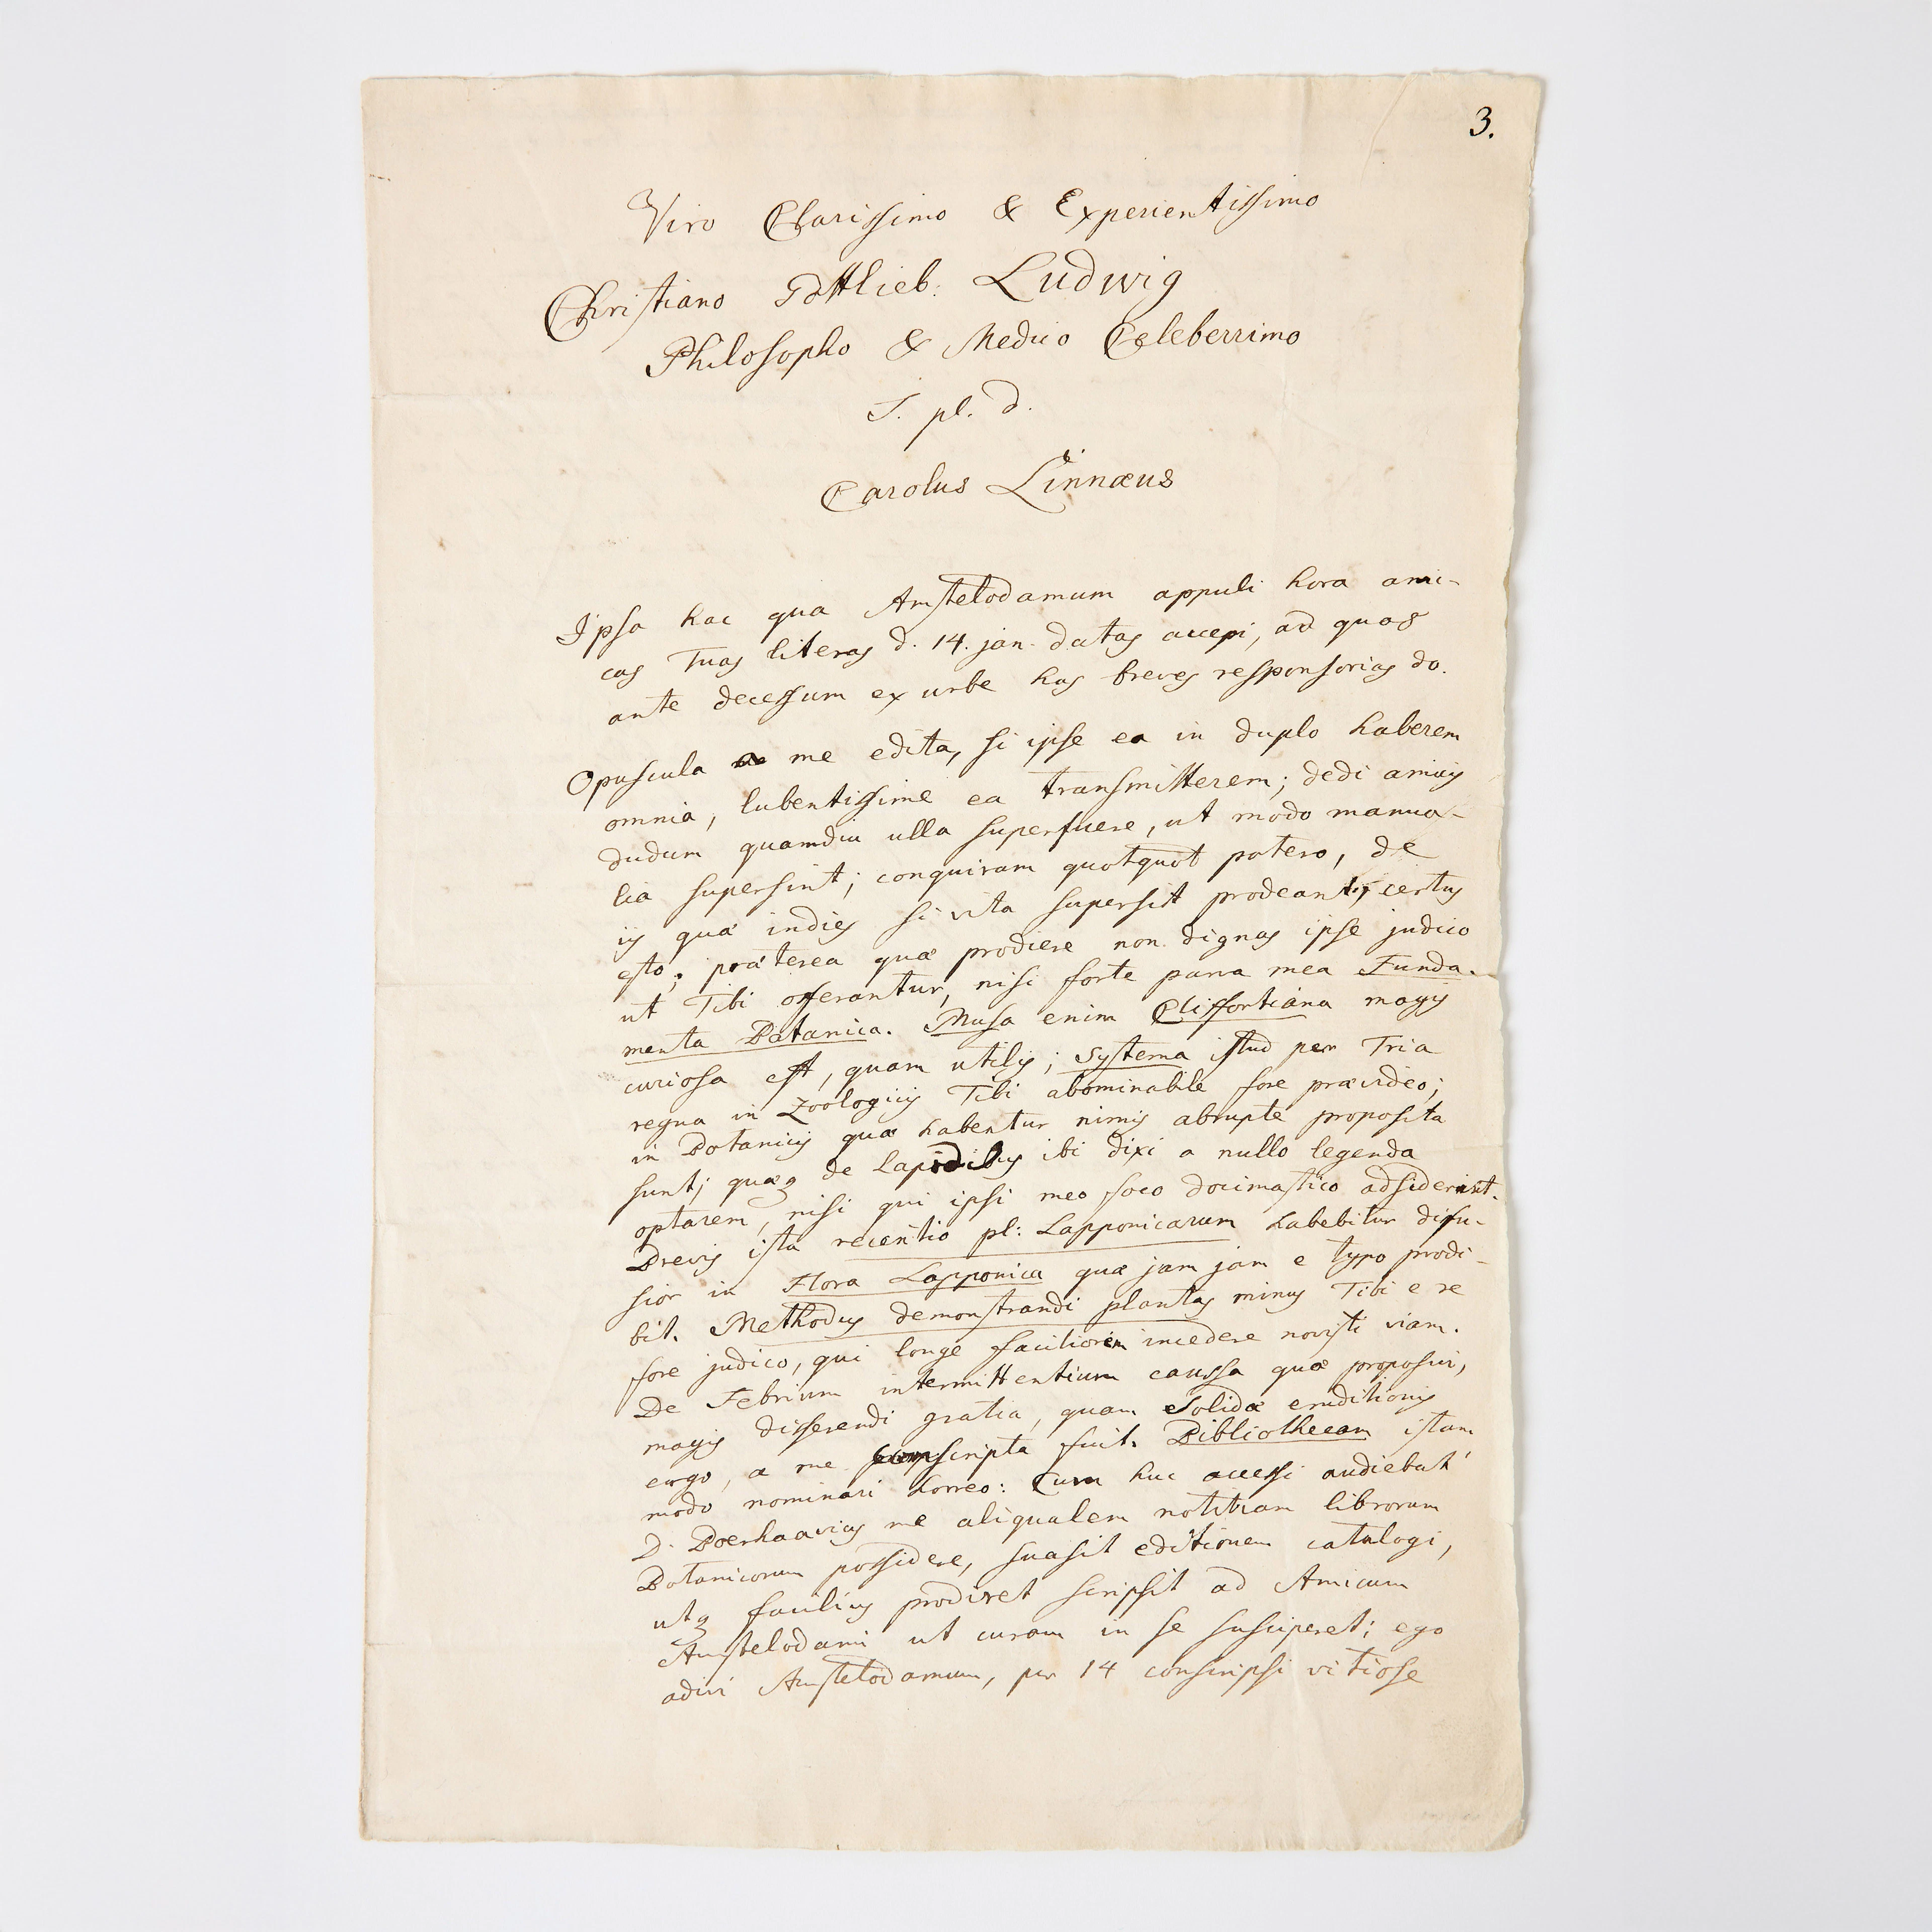 3.
Viro Clarissimo & Experientissimo
Christiano Gottlieb: Ludwig
Philosopho & Medico Celeberrimo
S. pl. d.
Carolus Linnæus
Ipsa hac qua Amstelodamum appuli hora ami-
cas Tuas literas d. 14. jan. datas accepi, ad quas
ante decessum ex urbe has breves responsorias do.
Opuscula a me edita, si ipse ea in duplo haberem
omnia, lubentissime ea transmitterem; dedi amicis
dudum quamdiu ulla superfuere, ut modo manua-
lia supersint; conquiram quotquot potero, de
iis quæ indies si vita supersit prodeant, certus
esto; præterea quæ prodiere non dignas ipse judico
ut Tibi offerantur, nisi forte parva mea Funda-
menta Botanica. Musa enim Cliffortiana magis
curiosa est, quam utilis; Systema istud per Tria
regna in Zoologicis Tibi abominabile fore prævideo;
in Botanicis quæ habentur nimis abrupte proposita
sunt; quæq de Lapidibus ibi dixi a nullo legenda
optarem, nisi qui ipsi meo foco docimastico adsiderint.
Brevis ista recentio pl: Lapponicarum habebitur difu-
sior in Flora Lapponica quæ jam jam e typo prodi-
bit. Methodus demonstrandi plantas minus Tibi e re
fore judico, qui longe faciliorem incedere novisti viam.
De Febrium intermittentium caussa quæ proposui,
magis disserendi gratia, quam solidæ eruditionis
ergo, a me conscripta fuit. Bibliothecam istam
modo nominari horreo: Cum huc accessi audiebat
D. Boerhaavius me aliqualem notitiam librorum
Botanicorum possidere, suasit editionem catalogi,
utq facilius prodiret scripsit ad Amicum
Amstelodami ut curam in se susciperet; ego
adivi Amstelodamum, per 14 conscripsi vitiose